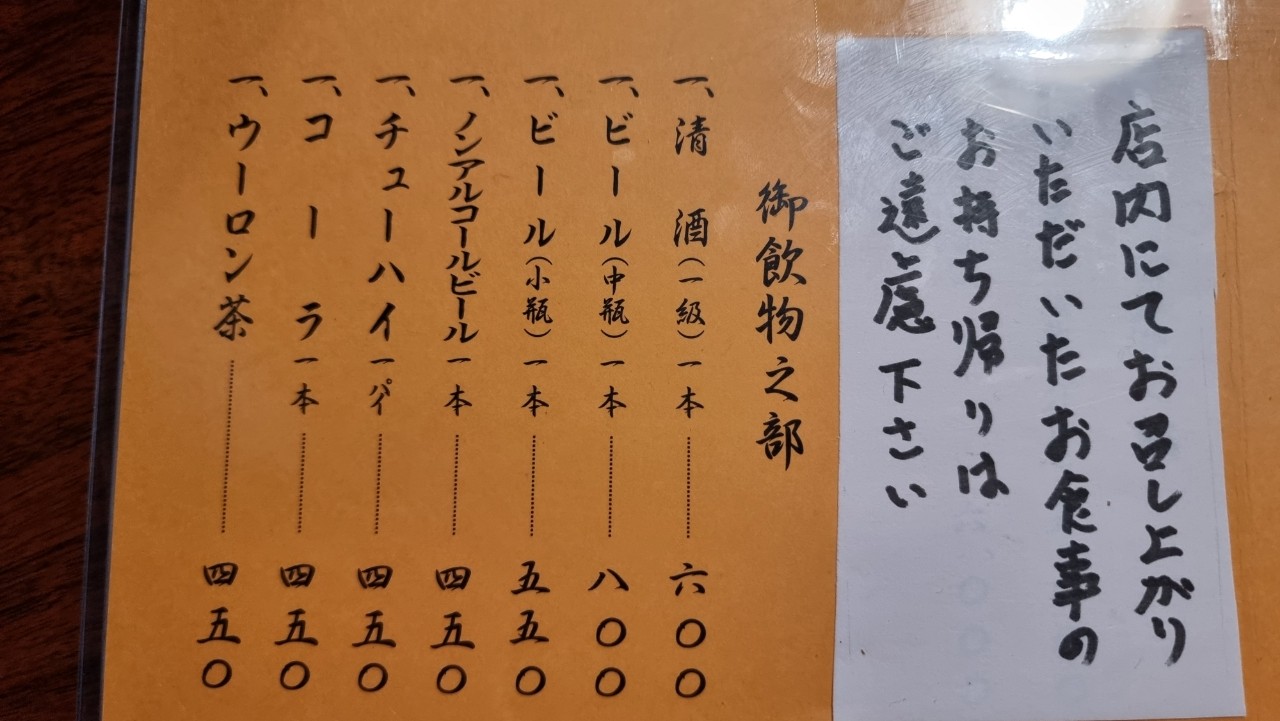 店内にてお召し上がり
いただいたお食事の
お持ち帰りは
ご遠慮下さい
御飲物之部
一、清酒(一級)一本………六〇〇
一、ビール(中瓶)一本………八〇〇
一、ビール(小瓶)一本………五五〇
一、ノンアルコールビール一本………四五〇
一、チューハイ一パイ………四五〇
一、コーラ一本………四五〇
一、ウーロン茶………四五〇